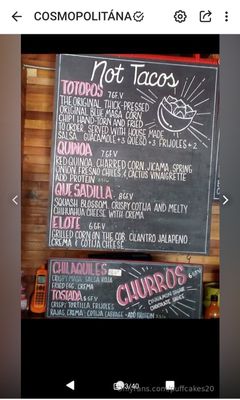 COSMOPOLITÁNA
Not Tacos
TOTOPOS 7 GF.V
THE ORIGINAL THICK-PRESSED
ORIGINAL BLUE MASA CORN
CHIP! HAND-TORN AND FRIED
TO ORDER. SERVED WITH HOUSE MADE
SALSA. GUACAMOLE +3 QUESO +3 FRIJOLES +2
QUINOA 7 GF.V
RED QUINOA, CHARRED CORN, JICAMA, SPRING
ONION, FRESNO CHILES & CACTUS VINAIGRETTE
ADD PROTEIN
QUESADILLA 8 GF.V
SQUASH BLOSSOM, CRISPY COTIJA AND MELTY
CHIHUAHUA CHEESE WITH CREMA
ELOTE 6 GF.V
GRILLED CORN ON THE COB, CILANTRO JALAPENO
CREMA & COTIJA CHEESE
CHILAQUILES
CRISPY MASA, SALSA ROJA
FRIED EGG, CREMA
TOSTADA 6 GF.V
CRISPY TORTILLA, FRIJOLES
RAJAS, CREMA, COTIJA, CABBAGE - ADD PROTEIN
CHURROS
CINNAMON SUGAR
CHOCOLATE SAUCE
3/40
onlyfans.com/puffcakes20